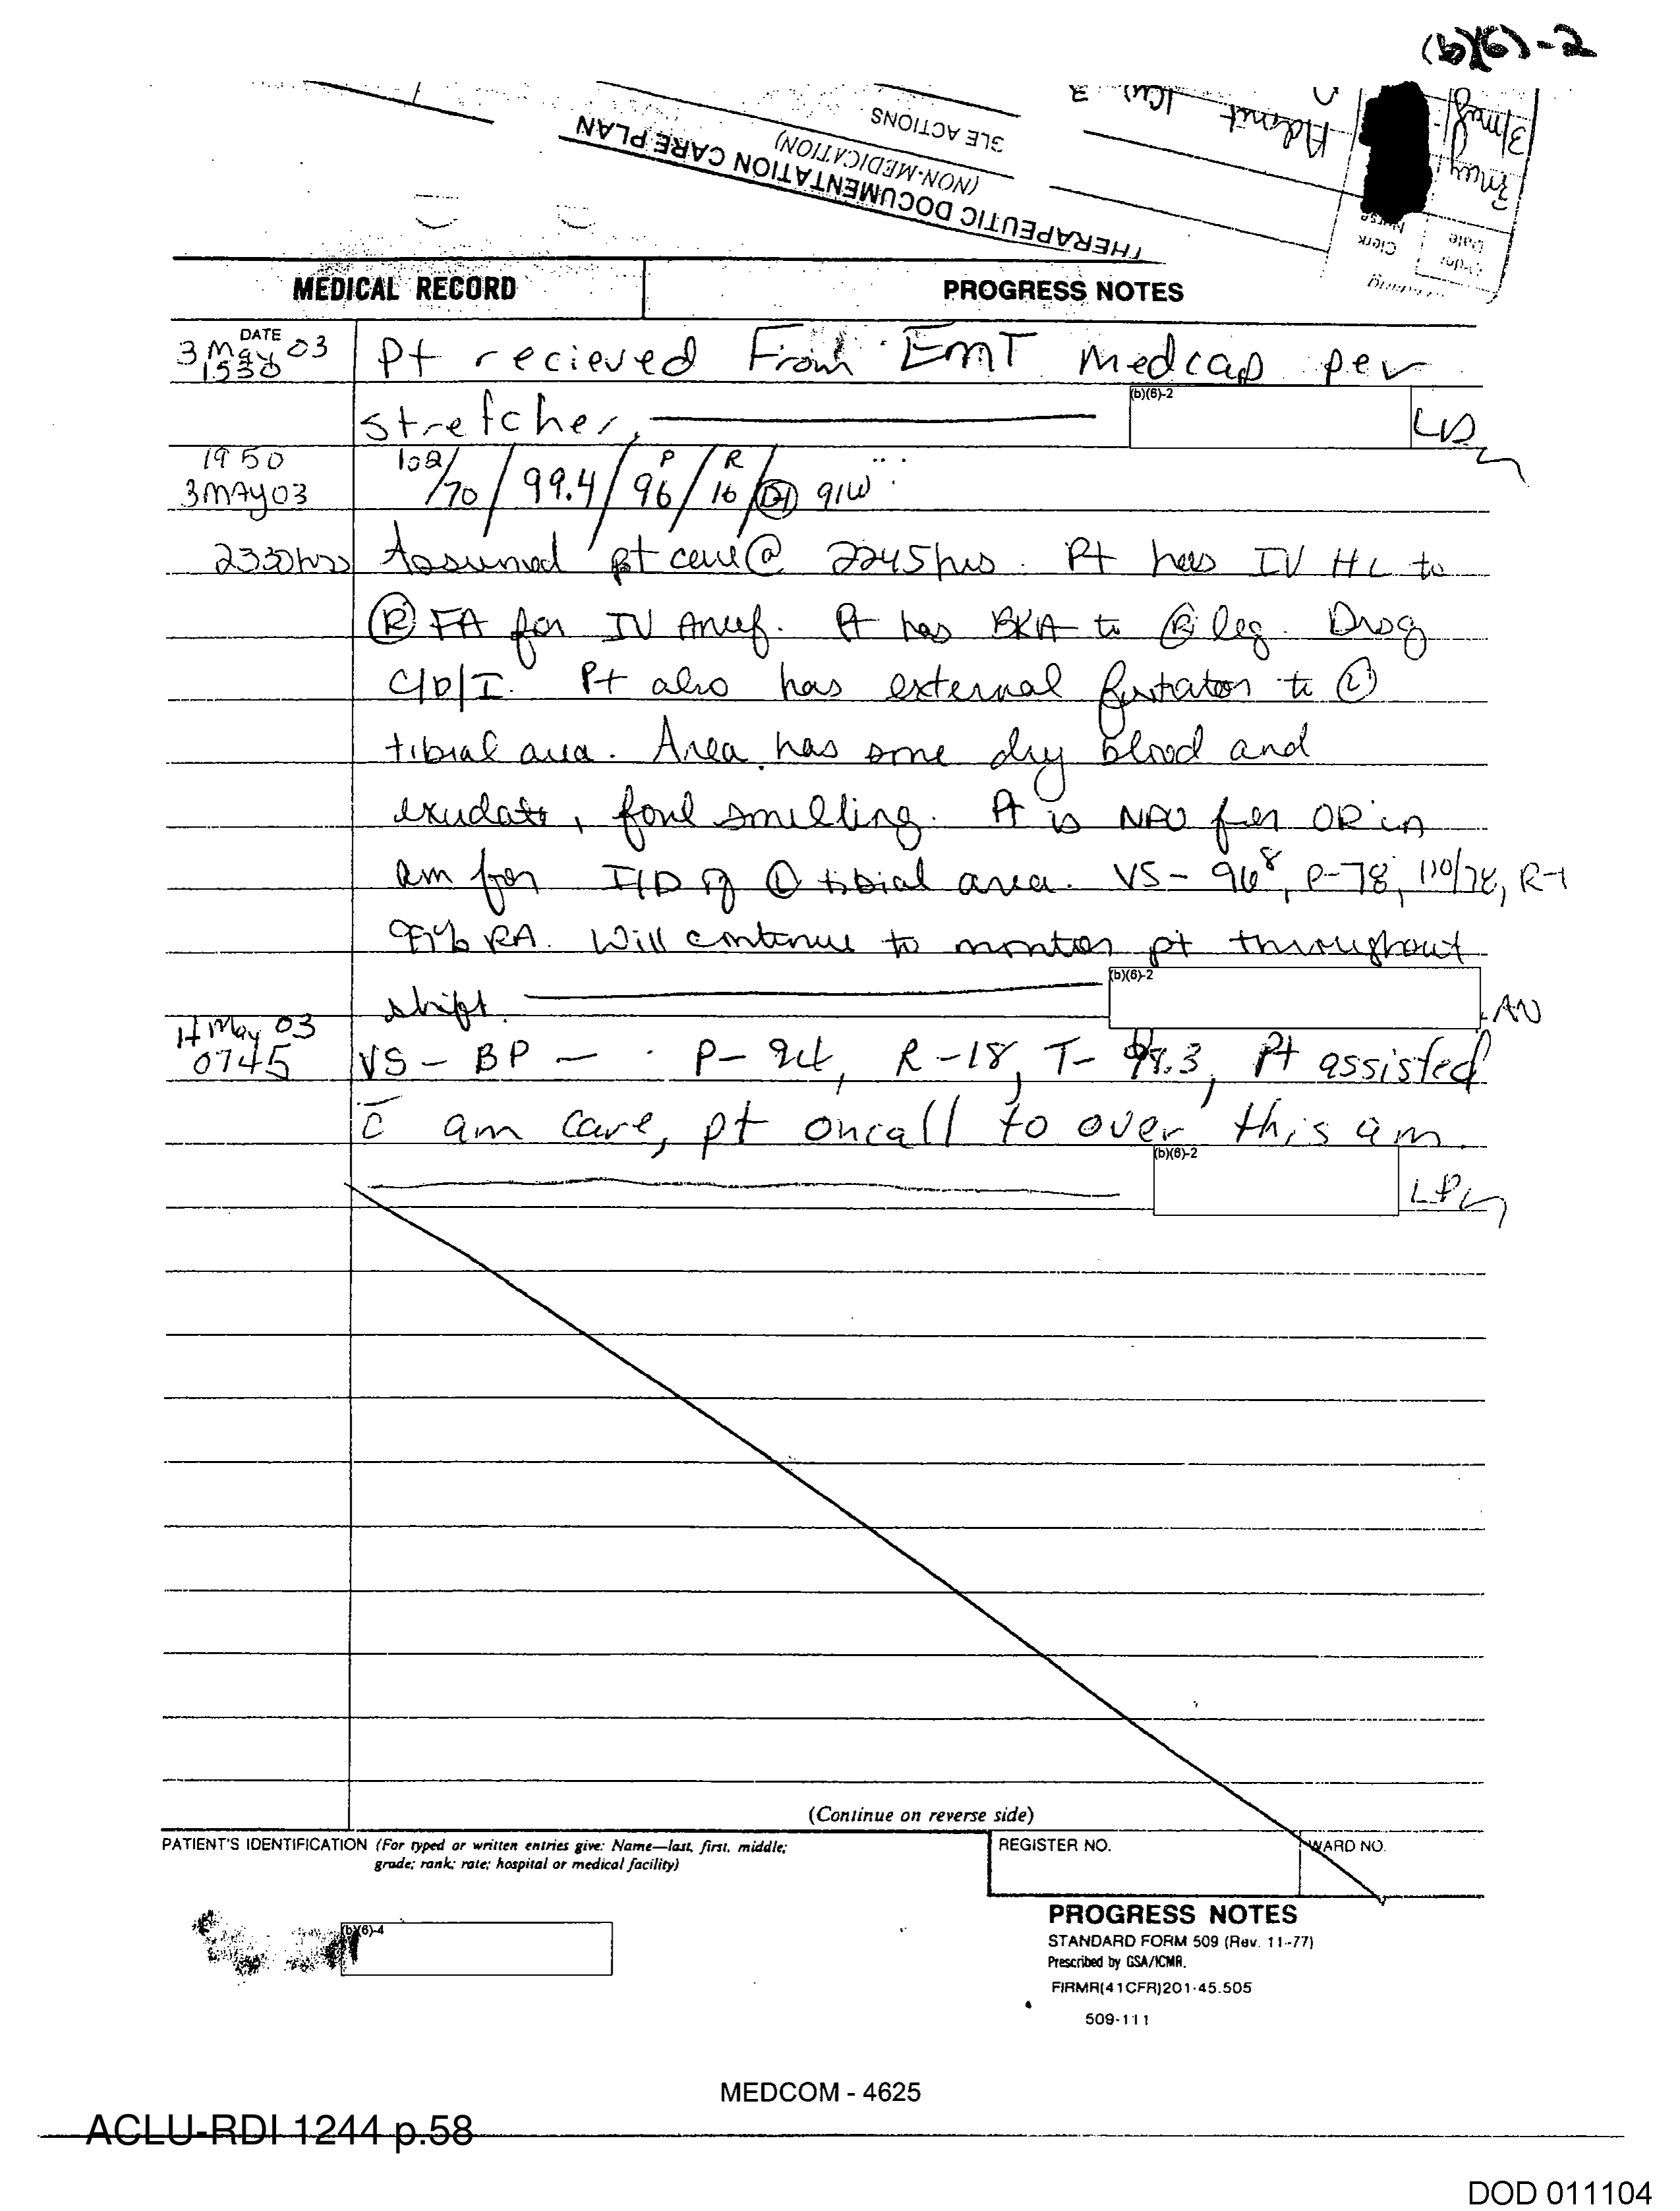 (b)(6)-2
3 May
3/May
Admit ICU 3
Order
Date
Clerk
Nurse
3LE ACTIONS
(NON-MEDICATION)
THERAPEUTIC DOCUMENTATION CARE PLAN
MEDICAL RECORD PROGRESS NOTES
DATE
3 May 03 Pt recieved From EmT medcap per
1530
stretcher, (b)(6)-2
1950 102/70 / 99.4 / P 96 / R 16 / 91W
3MAY03
2330hrs Assumed pt care @ 2245hrs. Pt has IV HL to
Ⓡ FA for IV Ancef. Pt has BKA to Ⓡ leg. Drsg
C/D/I. Pt also has external fixtator to Ⓛ
tibial area. Area has some dry blood and
exudate, foul smelling. Pt is NPO for OR in
am for I/D of Ⓛ tibial area. VS- 96⁸, P-78, 110/78, R-1
RA. Will continue to monitor pt throughout
shift. (b)(6)-2 AN
4 May 03
0745 VS- BP — P- 94, R-18, T- .3, Pt assisted
c̄ am care, pt oncall to over this am.
(b)(6)-2 LPN
(Continue on reverse side)
PATIENT'S IDENTIFICATION (For typed or written entries give: Name—last, first, middle; REGISTER NO. WARD NO.
grade; rank; rate; hospital or medical facility)
(b)(6)-4
PROGRESS NOTES
STANDARD FORM 509 (Rev. 11-77)
Prescribed by GSA/ICMR,
FIRMR(41CFR)201-45.505
509-111
MEDCOM - 4625
ACLU-RDI 1244 p.58
DOD 011104